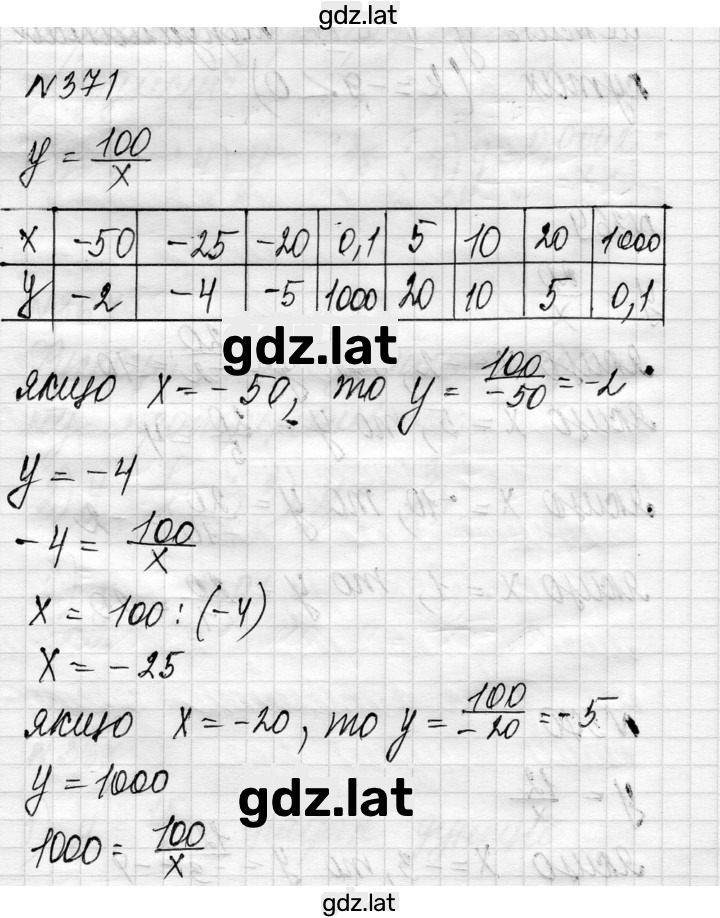 gdz.lat
N371
y = 100/x
x | -50 | -25 | -20 | 0,1 | 5 | 10 | 20 | 1000
y | -2 | -4 | -5 | 1000 | 20 | 10 | 5 | 0,1
gdz.lat
якщо x = -50, то y = 100/-50 = -2
y = -4
-4 = 100/x
x = 100 : (-4)
x = -25
якщо x = -20, то y = 100/-20 = -5
y = 1000
gdz.lat
1000 = 100/x
gdz.lat